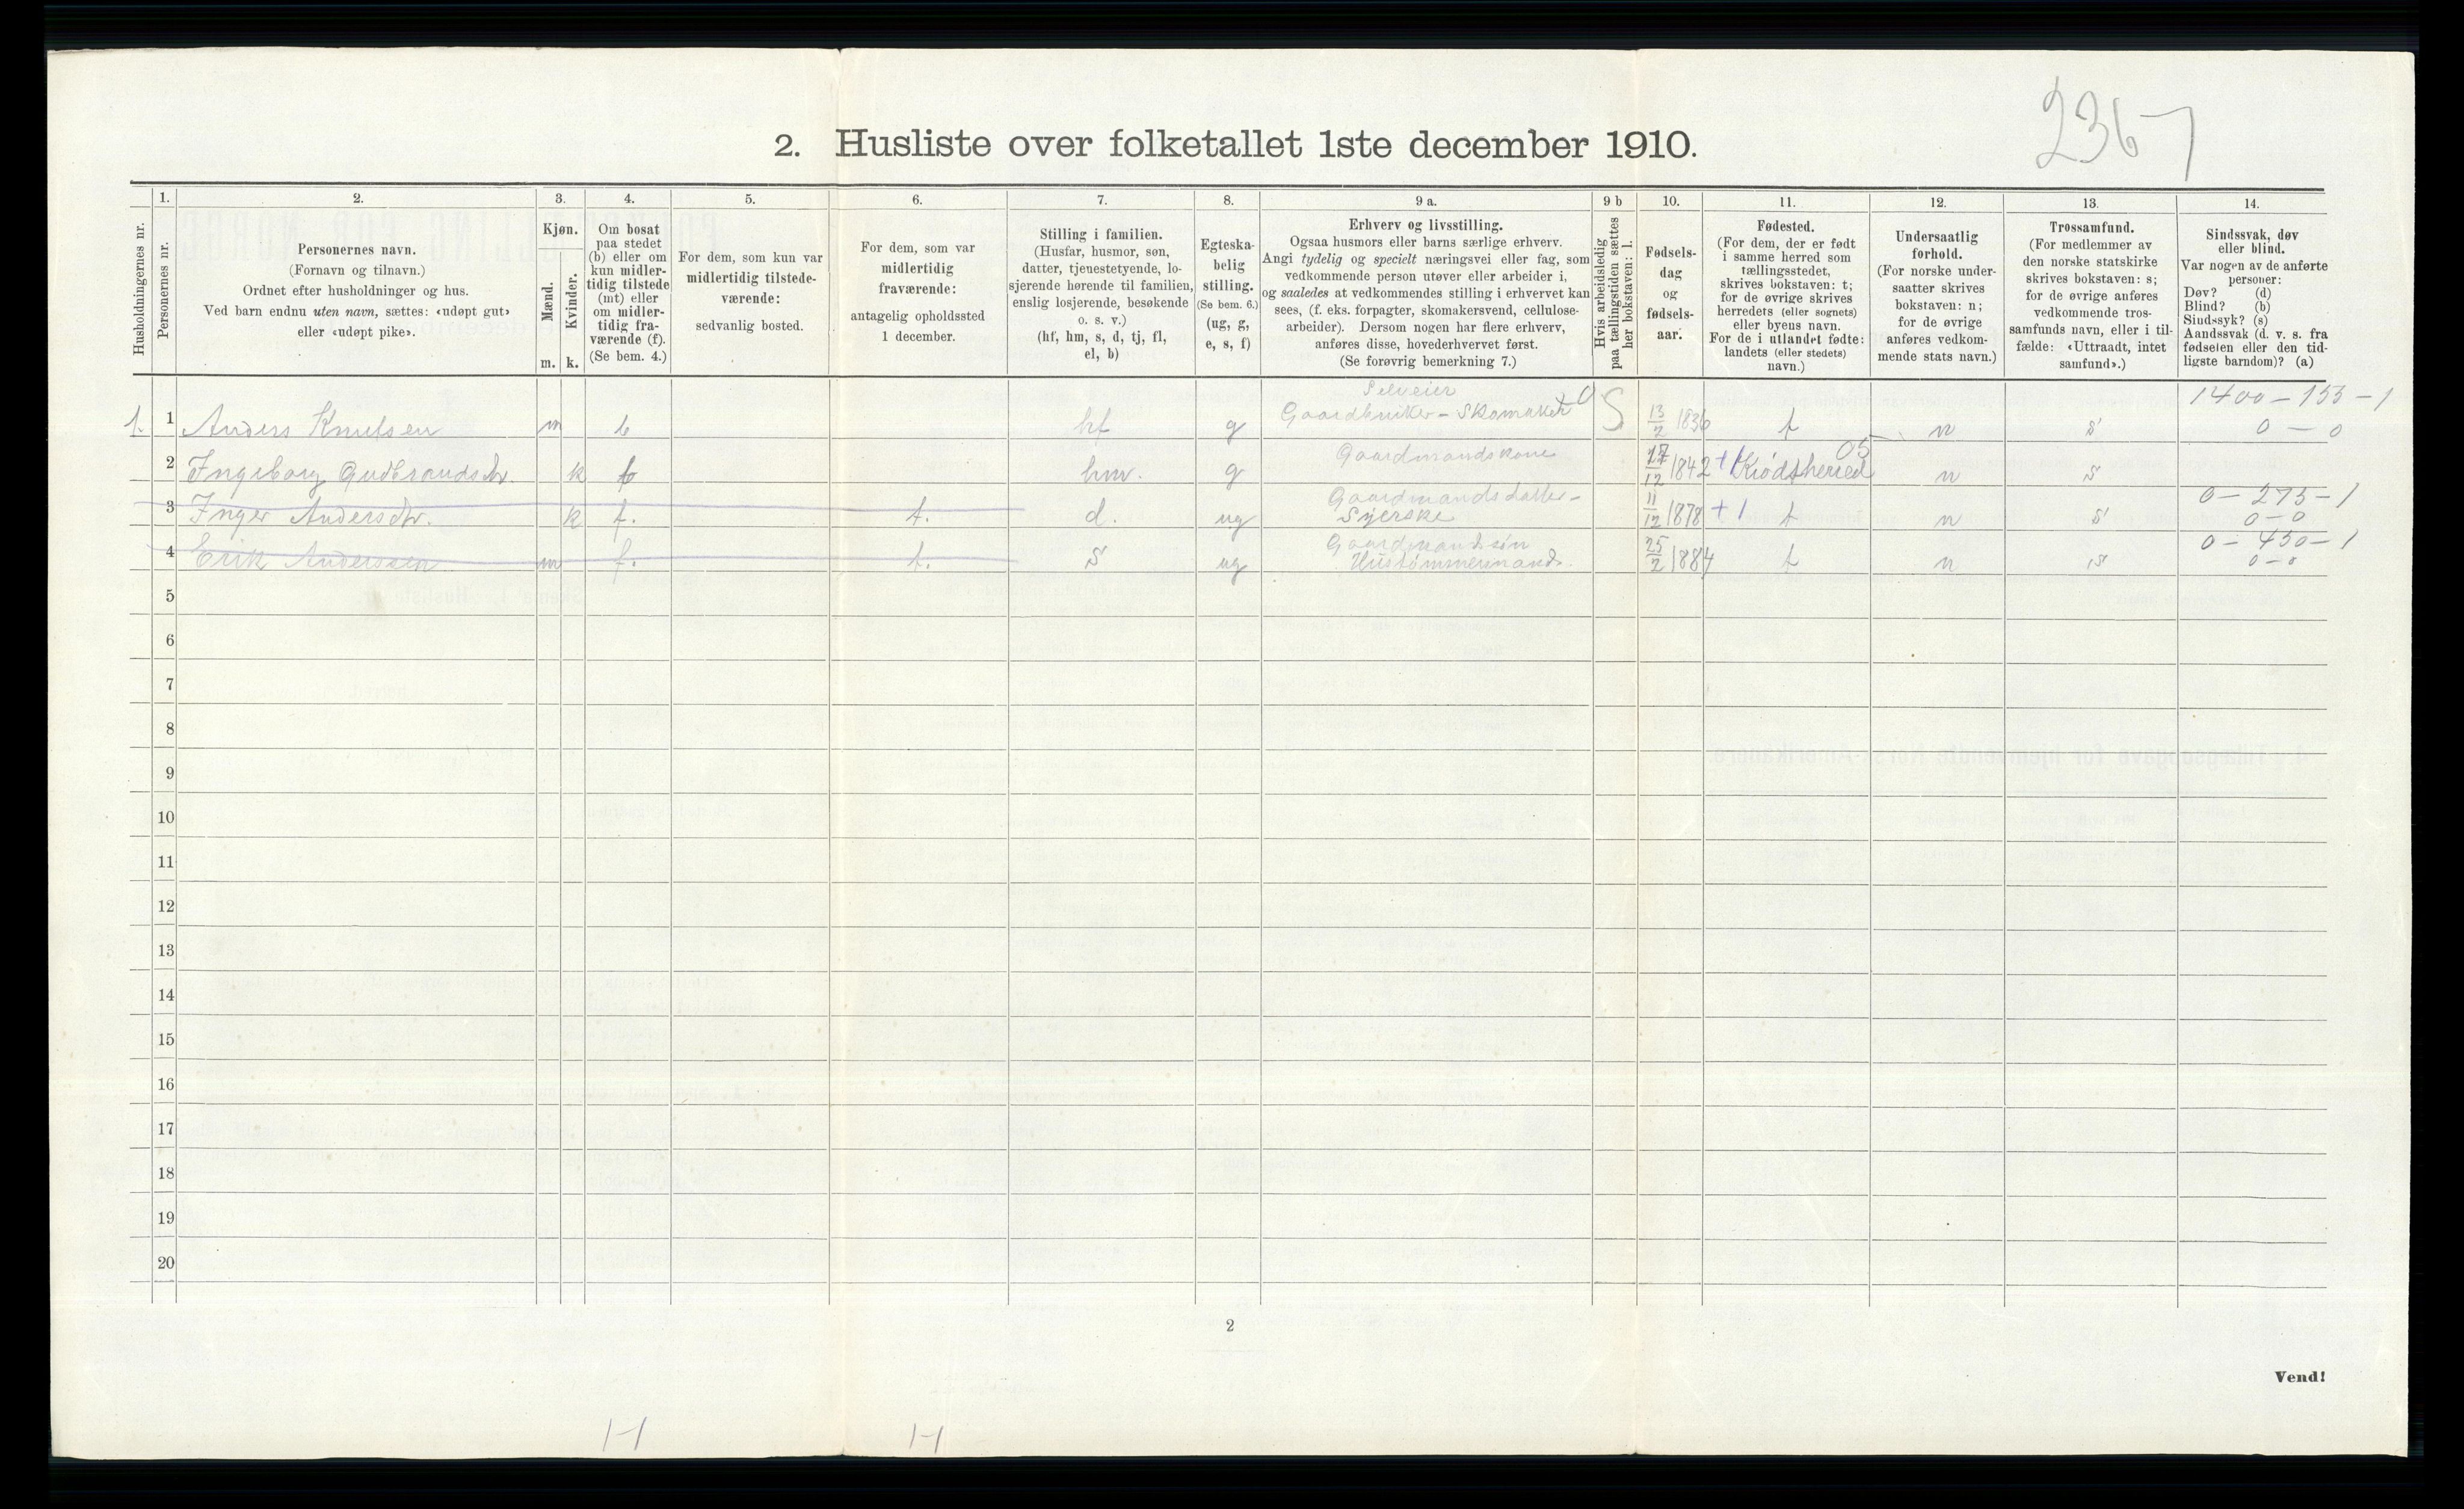 2367
2. Husliste over folketallet 1ste december 1910.
Husholdningernes nr.
1.
Personernes nr.
2.
Personernes navn.
(Fornavn og tilnavn.)
Ordnet efter husholdninger og hus.
Ved barn endnu uten navn, sættes: «udøpt gut»
eller «udøpt pike».
3.
Kjøn.
Mænd.
Kvinder.
m. k.
4.
Om bosat
paa stedet
(b) eller om
kun midler-
tidig tilstede
(mt) eller
om midler-
tidig fra-
værende (f).
(Se bem. 4.)
5.
For dem, som kun var
midlertidig tilstede-
værende:
sedvanlig bosted.
6.
For dem, som var
midlertidig
fraværende:
antagelig opholdssted
1 december.
7.
Stilling i familien.
(Husfar, husmor, søn,
datter, tjenestetyende, lo-
sjerende hørende til familien,
enslig losjerende, besøkende
o. s. v.)
(hf, hm, s, d, tj, fl,
el, b)
8.
Egteska-
belig
stilling.
(Se bem. 6.)
(ug, g,
e, s, f)
9 a.
Erhverv og livsstilling.
Ogsaa husmors eller barns særlige erhverv.
Angi tydelig og specielt næringsvei eller fag, som
vedkommende person utøver eller arbeider i,
og saaledes at vedkommendes stilling i erhvervet kan
sees, (f. eks. forpagter, skomakersvend, cellulose-
arbeider). Dersom nogen har flere erhverv,
anføres disse, hovederhvervet først.
(Se forøvrig bemerkning 7.)
9 b
Hvis arbeidsledig
paa tællingstiden sættes
her bokstaven: l.
10.
Fødsels-
dag
og
fødsels-
aar.
11.
Fødested.
(For dem, der er født
i samme herred som
tællingsstedet,
skrives bokstaven: t;
for de øvrige skrives
herredets (eller sognets)
eller byens navn.
For de i utlandet fødte:
landets (eller stedets)
navn.)
12.
Undersaatlig
forhold.
(For norske under-
saatter skrives
bokstaven: n;
for de øvrige
anføres vedkom-
mende stats navn.)
13.
Trossamfund.
(For medlemmer av
den norske statskirke
skrives bokstaven: s;
for de øvrige anføres
vedkommende tros-
samfunds navn, eller i til-
fælde: «Uttraadt, intet
samfund».)
14.
Sindssvak, døv
eller blind.
Var nogen av de anførte
personer:
Døv? (d)
Blind? (b)
Sindssyk? (s)
Aandssvak (d. v. s. fra
fødselen eller den tid-
ligste barndom)? (a)
Selveier 1400-155-1
1. 1 Anders Knutsen m b hf g Gaardbruker - Skomaker S 13/2 1836 t n s 0-0
05
2 Ingeborg Gudbrandsdtr. k b hm. g Gaardmandskone 17/12 1842 +1 Krødsherred n s
Gaardmandsdatter- 0-275-1
3 Inger Andersdtr. k f. t. d. ug Syerske 11/12 1878 +1 t n s 0-0
Gaardmandssøn 0-450-1
4 Erik Anderssen m f. t. s ug Hustømmermand. 25/2 1884 t n s 0-0
5
6
7
8
9
10
11
12
13
14
15
16
17
18
19
20
2
Vend!
1-1 1-1